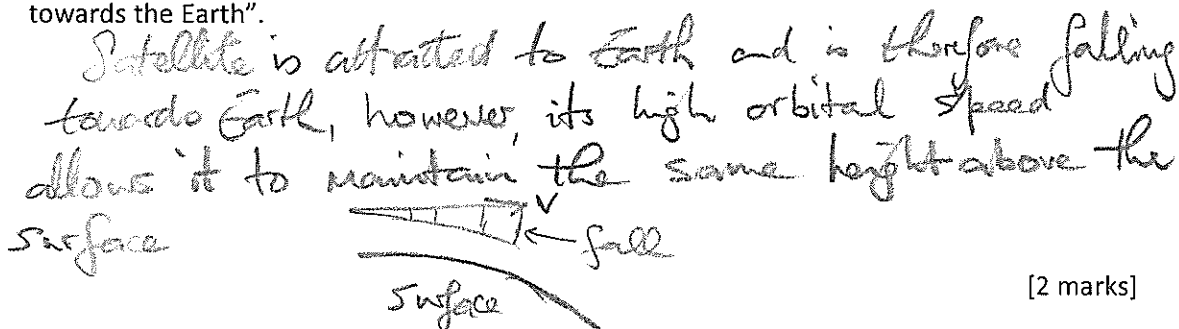 towards the Earth".
Satellite is attracted to Earth and is therefore falling
towards Earth, however, its high orbital speed
allows it to maintain the same height above the
surface
v
fall
surface
[2 marks]